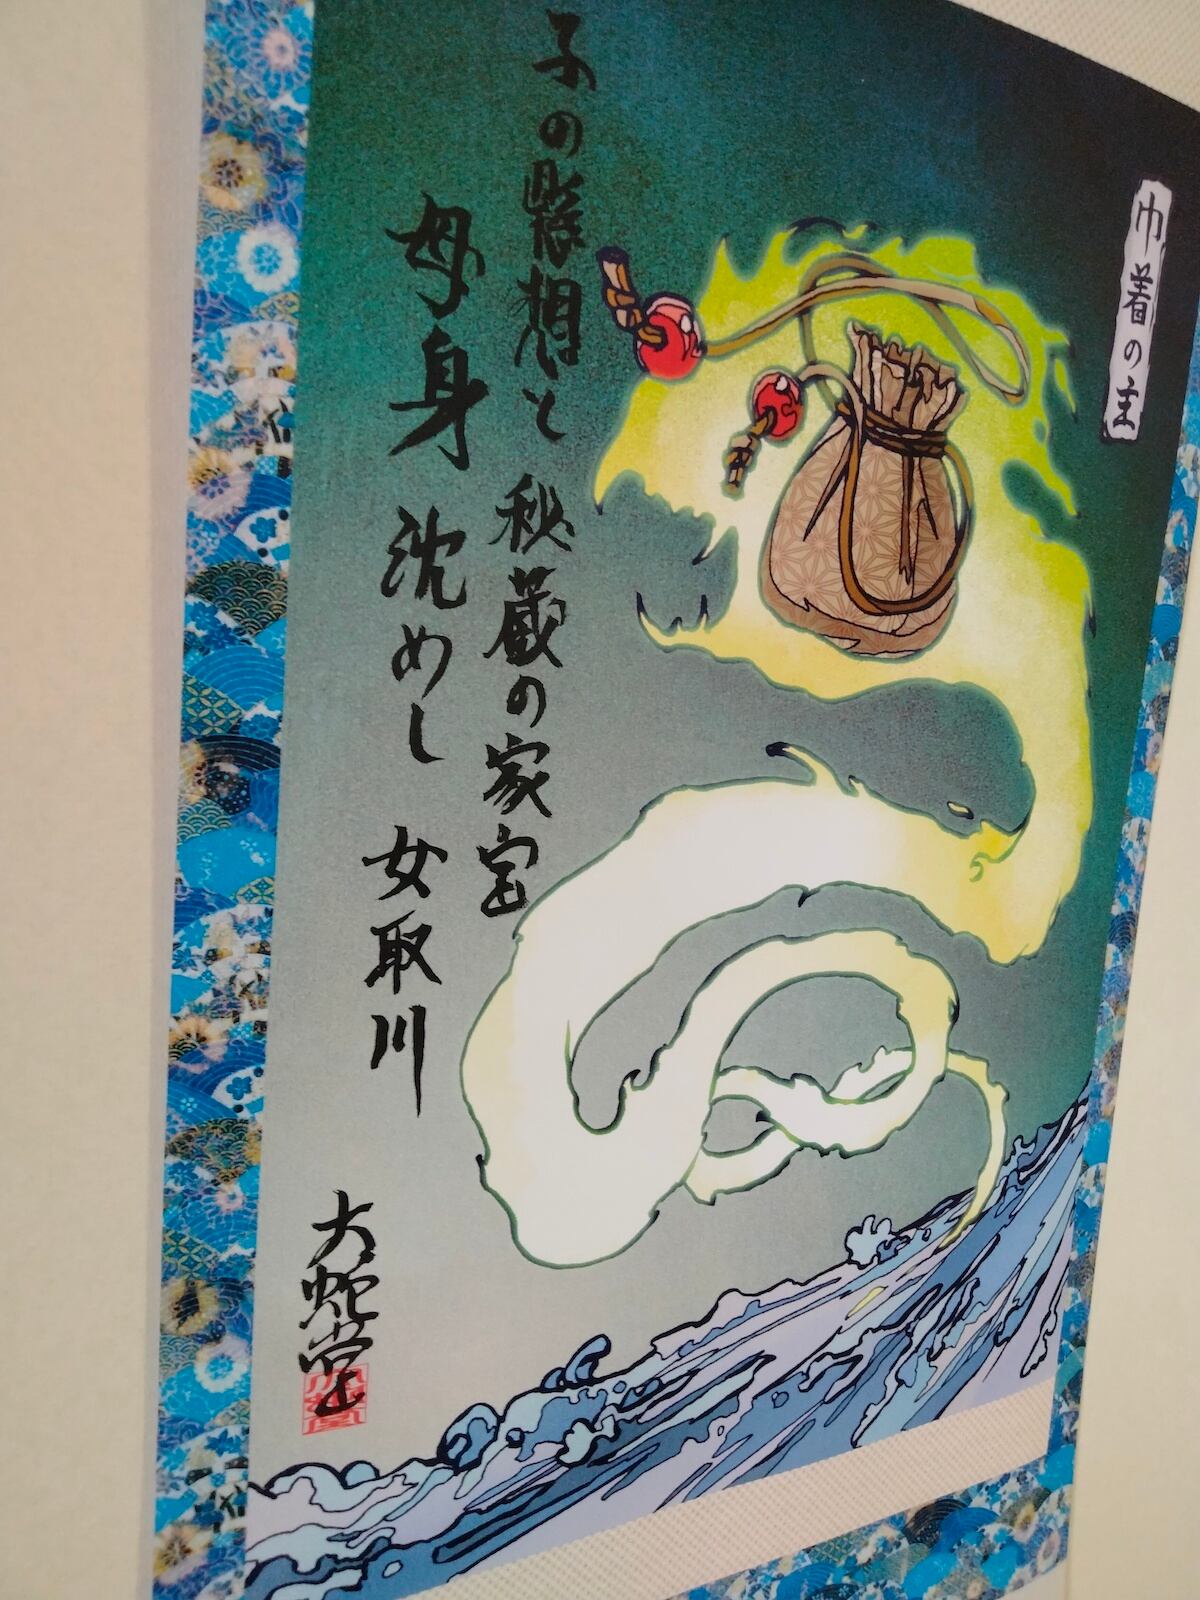 巾着の主
子の懸想と 秘蔵の家宝
母身沈めし 女取川
大蛇堂